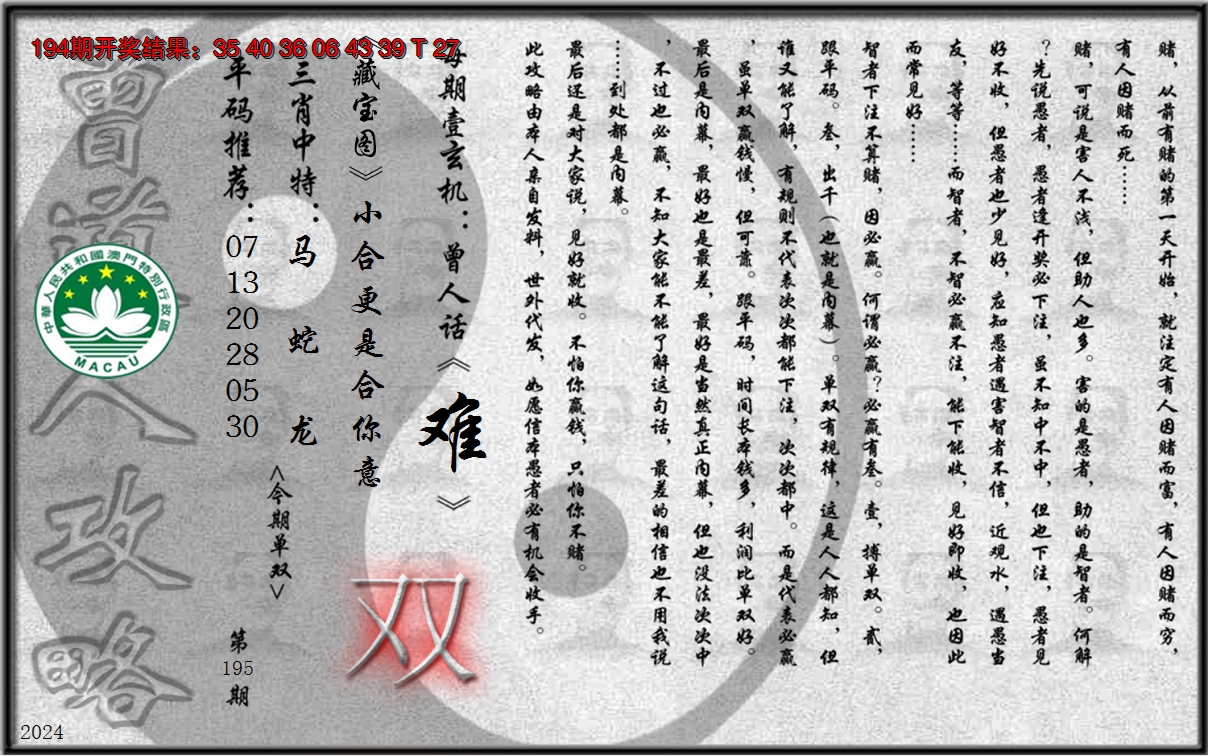 194期开奖结果：35 40 36 06 43 39 T 27
赌，从前有赌的第一天开始，就注定有人因赌而富，有人因赌而穷，
有人因赌而死……
赌，可说是害人不浅，但助人也多。害的是愚者，助的是智者。何解
？先说愚者，愚者逢开奖必下注，虽不知中不中，但也下注，愚者见
好不收，但愚者也少见好，应知愚者遇害智者不信，近观水，遇愚当
友，等等……而智者，不智必赢不注，能下能收，见好即收，也因此
而常见好……
智者下注不算赌，因必赢。何谓必赢？必赢有叁。壹，搏单双。贰，
跟平码。叁，出千（也就是内幕）。单双有规律，这是人人都知，但
谁又能了解，有规则不代表次次都能下注，次次都中。而是代表必赢
，虽单双赢钱慢，但可靠。跟平码，时间长本钱多，利润比单双好。
最后是内幕，最好也是最差，最好是当然真正内幕，但也没法次次中
，不过也必赢，不知大家能不能了解这句话，最差的相信也不用我说
……到处都是内幕。
最后还是对大家说，见好就收。不怕你赢钱，只怕你不赌。
此攻略由本人亲自发料，世外代发，如愿信本愚者必有机会收手。
每期壹玄机：曾人话《难》
《藏宝图》小合更是合你意
双
三肖中特：马 蛇 龙
<今期单双>
平码推荐：07 13 20 28 05 30
第195期
曾道人攻略
中華人民共和國澳門特別行政區
MACAU
2024